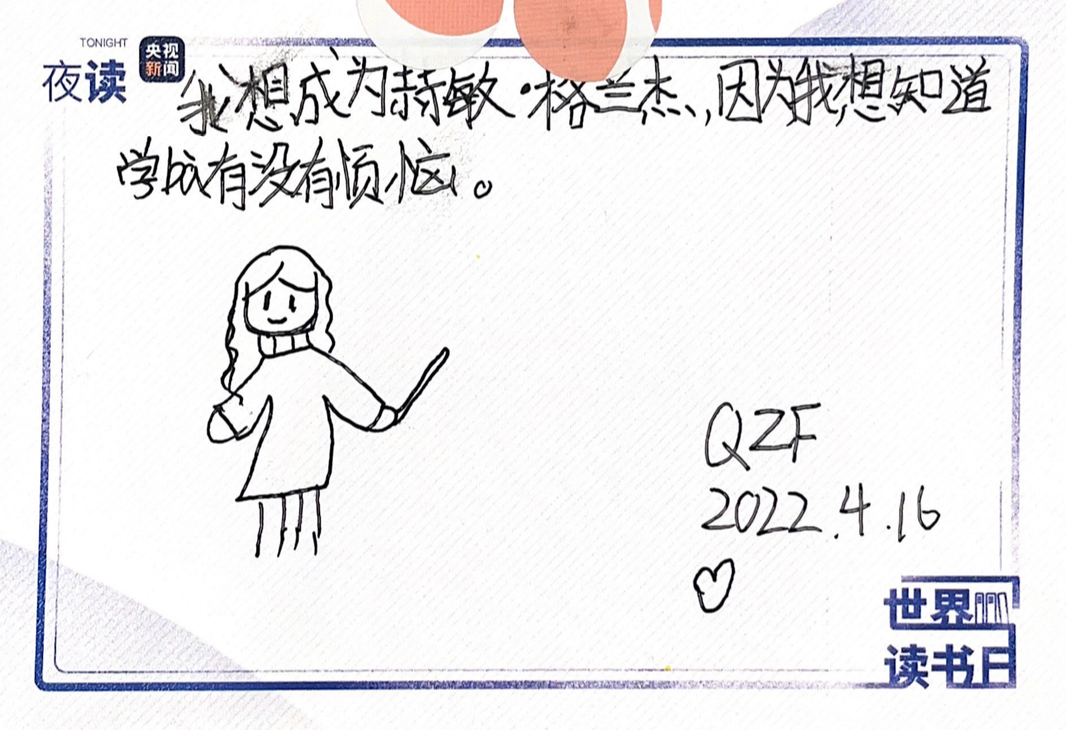 TONIGHT
夜读
央视
新闻
我想成为赫敏·格兰杰,因为我想知道
学b成有没有烦恼。
QZF
2022.4.16
世界
读书日